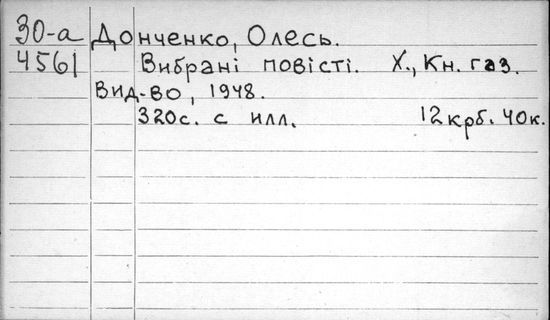 30-а Донченко, Олесь.
4561 Вибрані повісті. Х., Кн. газ.
Вид-во, 1948.
320с. с илл. 12 крб. 40к.